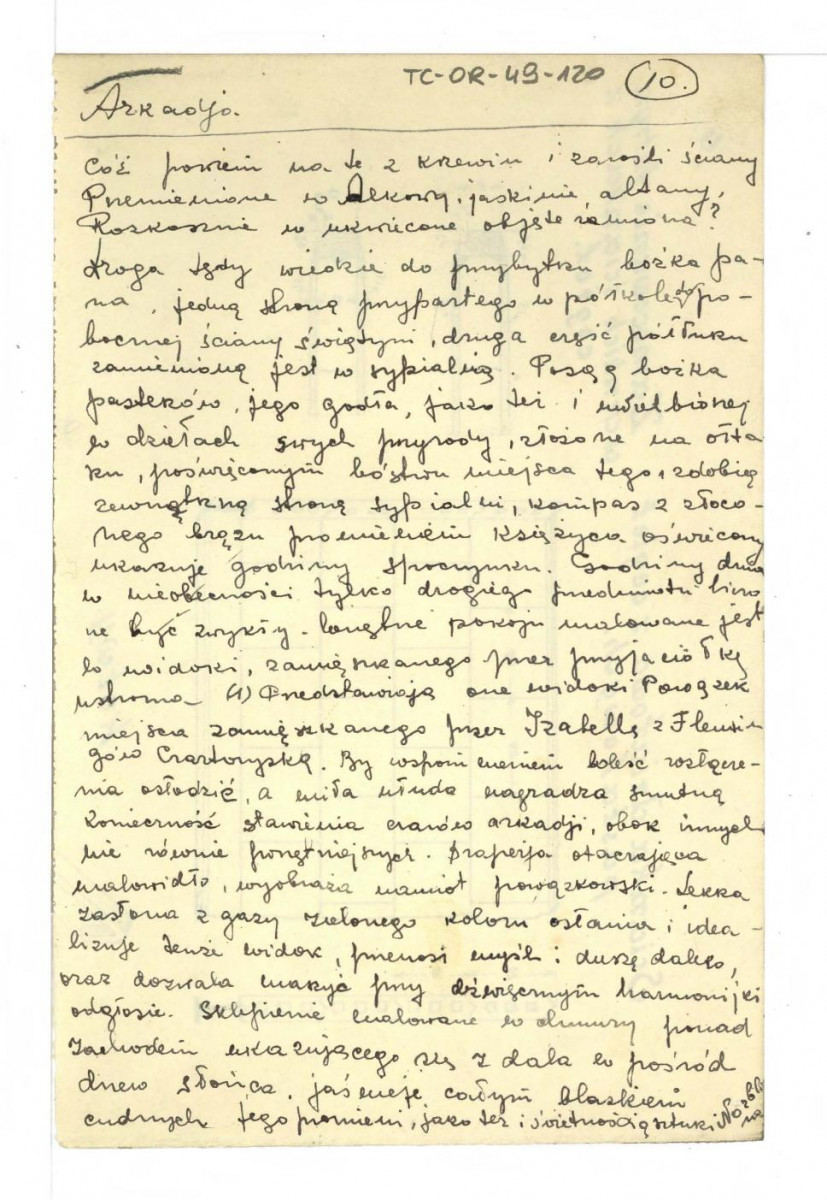 TC-OR-49-120 10.
Arkadja.
Cóż powiem na te z krzewin i zarośli ściany
Przemienione w Alkowy, jaskinie, altany,
Rozkosznie w ukwiecone objęte ramiona?
droga tędy wiedzie do przybytku bożka pa-
na, jedną stroną przypartego w półkole do po-
bocznej ściany świątyni, druga część półłuku
zamienioną jest w sypialnię. Posąg bożka
pasterzów, jego godła, jako też i uwielbionej
w dziełach swych przyrody, złożone na ołta-
rzu, poświęconym bóstwu miejsca tego, zdobią
zewnętrzną stronę sypialni, kompas z złoco-
nego brązu promieniem księżyca oświecony
ukazuje godziny spoczynku. Godziny dnia
w nieobecności tylko drogiego przedmiotu liczo
ne być zwykły. Wnętrze pokoju malowane jest
w widoki, zamięszkanego przez przyjaciółkę
ustronia (1) Przedstawiają one widoki Powązek
miejsca zamięszkanego przez Izabellę z Flemin
gów Czartoryską. By wspomnieniem boleść rozłącze-
nia osłodzić, a miła ułuda nagradza smutną
konieczność sławienia czarów arkadji, obok innych
nie równie ponętniejszych. Draperja otaczająca
malowidło, wyobraża namiot powązkowski. Lekka
zasłona z gazy zielonego koloru osłania i idea-
lizuje tenże widok, przenosi myśl i duszę daleko,
oraz dozwala marzyć przy dźwięcznym harmonijki
odgłosie. Sklepienie malowane w chmury ponad
zachodem ukazującego się z dala w pośród
drzew słońca, jaśnieje całym blaskiem
cudnych jego promieni, jako też i świetnością sztuki Norbli
na